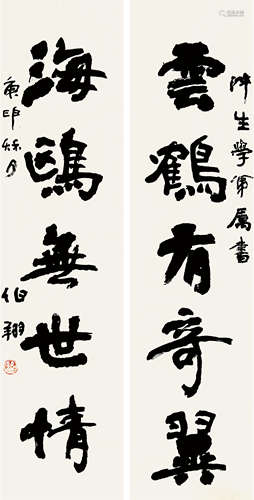 陟生學弟屬書
雲鶴有奇翼
海鷗無世情
庚申秋月
伯翔